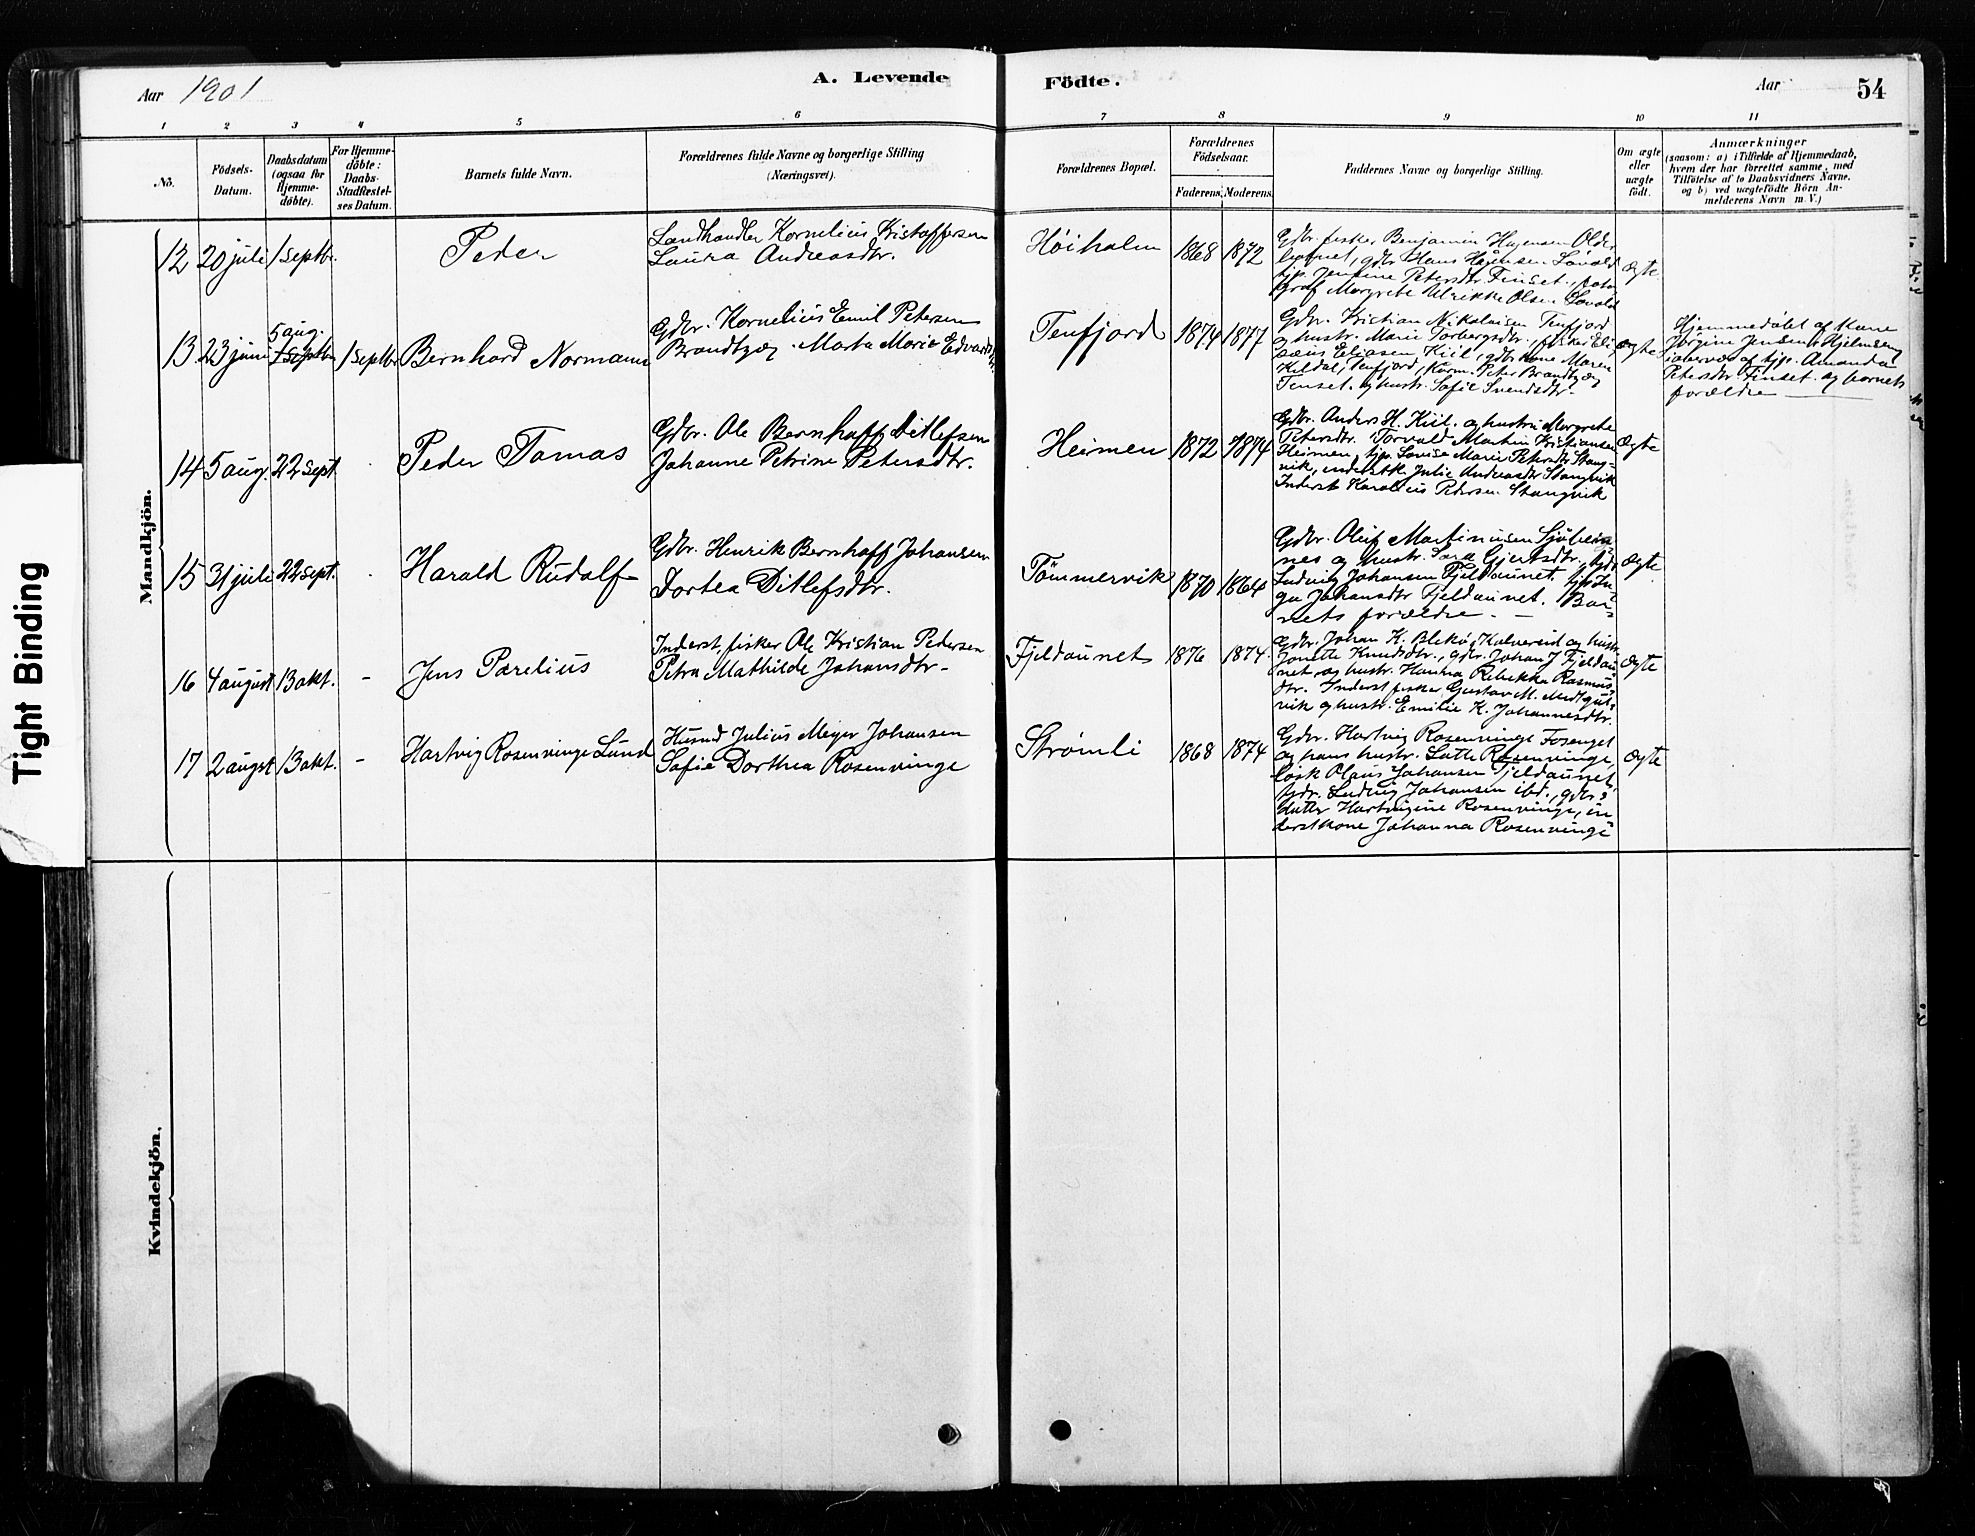 Aar 1901
A. Levende
Födte.
Aar
54
1 2 3 4 5 6 7 8 9 10 11
No.
Födsels-Datum.
Daabsdatum (ogsaa for Hjemme-döbte).
For Hjemme-döbte: Daabs-Stadfæstel-ses Datum.
Barnets fulde Navn.
Forældrenes fulde Navne og borgerlige Stilling (Næringsvei).
Forældrenes Bopæl.
Forældrenes Födselsaar.
Faderens.
Moderens.
Faddernes Navne og borgerlige Stilling.
Om ægte eller uægte födt.
Anmærkninger
(saasom: a) i Tilfælde af Hjemmedaab,
hvem der har forrettet samme, med
Tilföielse af to Daabsvidners Navne.
og b) ved uægtefödte Börn An-
melderens Navn m. V.)
Mandkjön.
12 20 juli 1 septbr. Peder
Landhandler Kornelius Kristoffersen
Laura Andreasdtr.
Höiholm 1868 1872
Gdbr. fisker Benjamin Hagensen Older
Hans Hagensen Lovold
tjp. Jensine Petersdtr. Finset, foto
graf Margrete Ulrikke Olsen Lovold
Ægte
13 23 juni 5 aug. 1 septbr. 1 septbr. Bernhard Normann
Gdbr. Kornelius Emil Petersen
Brandtzæg. Marta Marie Edvardsdtr.
Tenfjord 1874 1877
Gdbr. Kristian Nikolaisen Tenfjord
og hustr. Marie Torbergsdtr., fisker Eli
sæus Eliasen Kiil, gdbrkone Maren
Kildal, Tenfjord, Kårm. Peter Brandtzæg
Tenset. og hustr. Sofie Svendsdtr.
Ægte
Hjemmedöbt af Kone
Jørgine Jensen Hjelmseng
i overvær af tjp. Amanda
Petersdtr Finset og barnets
forældre
14 5 aug. 22 sept. Peder Tomas
Gdbr. Ole Bernhoff Ditlefsen
Johanne Petrine Petersdtr.
Heimen 1872 1874
Gdbr. Anders H. Kiil. og hustru Margrete
Petersdtr. Torvald Martin Kristiansen
Heimen, tjp. Lovise Marie Petersdtr Stang-
vik, inderstk. Julie Andreasdtr Stangvik
Inderst Karolius Pedersen Stangvik
Ægte
15 31 juli 22 sept. Harald Rudolf
Gdbr. Henrik Bernhoff Johansen
Dortea Ditlefsdtr.
Tömmervik 1870 1864
Gdbr. Oluf Martinusen
nes og hustr. Sara Gjertsdtr.,
Ludvig Johansen Fjeldaunet. tjp. In-
ga Johansdtr Fjeldaunet. Bar-
nets forældre
Ægte
16 4 august 13 okt. - Jens Parelius
Inderst, fisker Ole Kristian Pedersen
Petra Mathilde Johansdtr.
Fjeldaunet 1876 1874
Gdbr. Johan K. Blikø, Kalversund og hustr.
Jonette Knudsdtr., gdbr. Johan J. Fjeldau
net, og hustr. Hanna Rebekka Rasmus
dtr. Inderst fisker Gustav M. Medtgul-
vik og hustr. Emilie K. Johannesdtr.
Ægte
17 2 august 13 okt. - Hartvig Rosenvinge Lund
Husmd Julius Meyer Johansen
Sofie Dorthea Rosenvinge
Strömli 1868 1874
Gdbr. Hartvig Rosenvinge Fosenget
og hans hustr. Lotte Rosenvinge,
løsk Olaus Johansen Fjeldaunet,
Ludvig Johansen ibd., gdbr.
datter Hartvigine Rosenvinge, in
derstkone Johanna Rosenvinge
Ægte
Kvindekjön.
Tight Binding